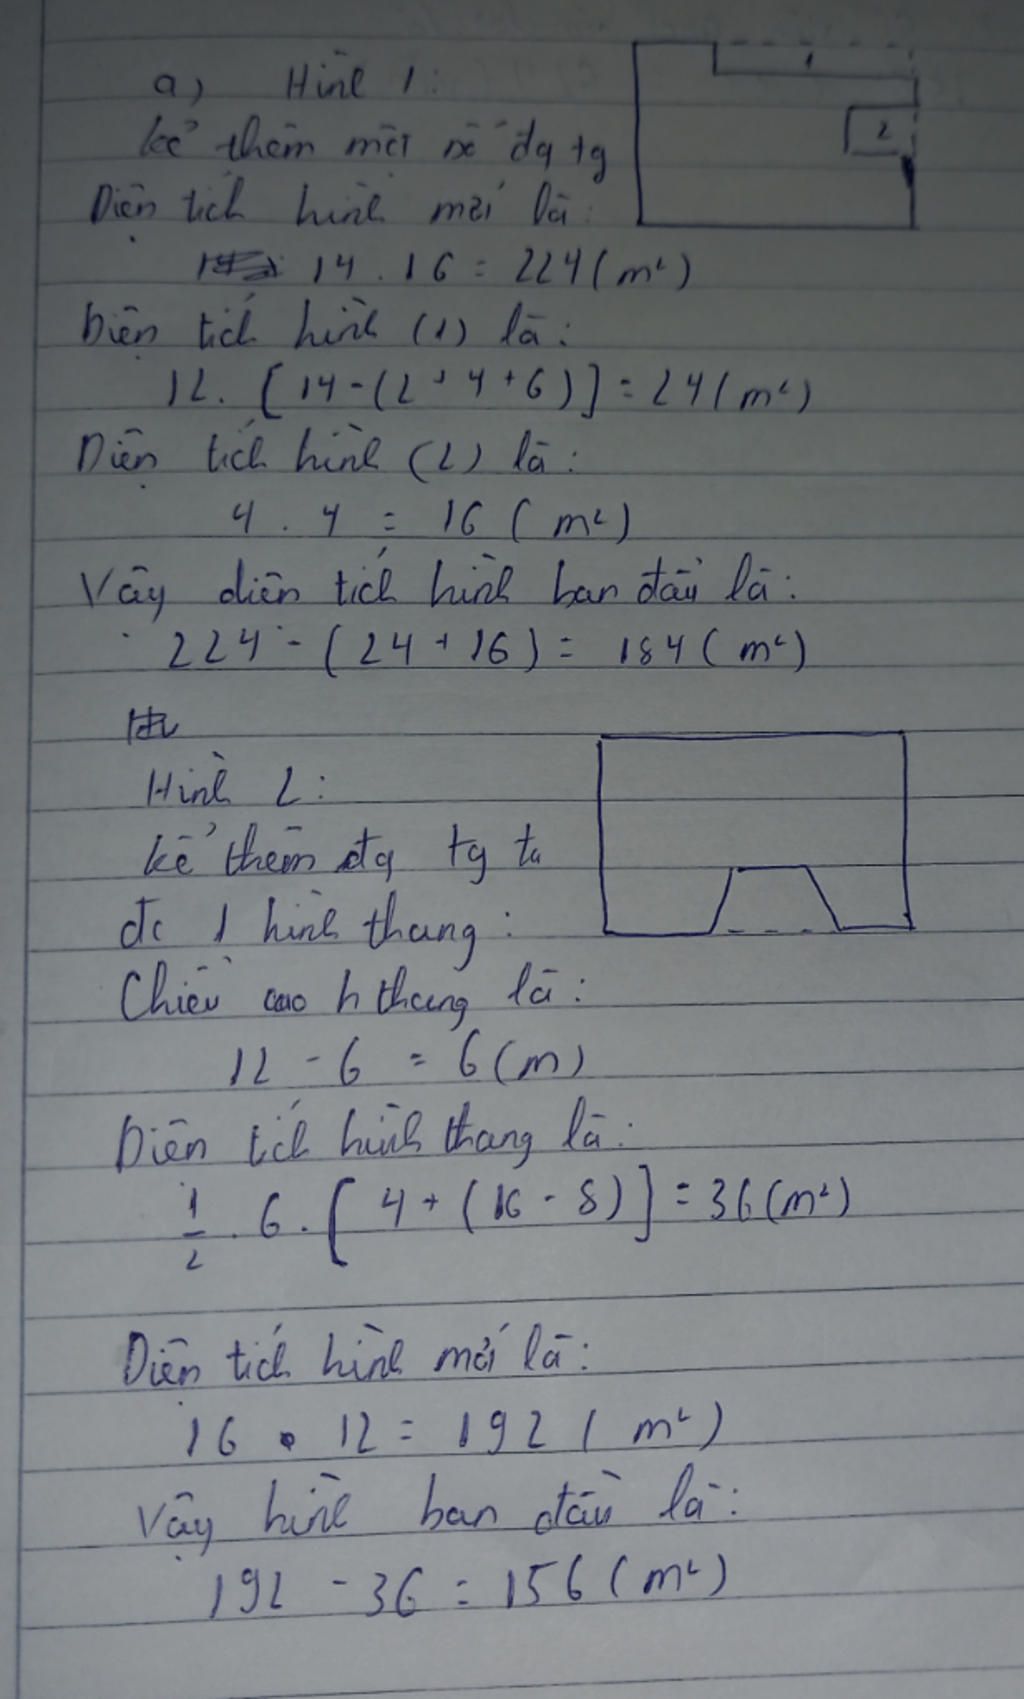 a) Hình 1:
1
2
kẻ thêm một số đg tg
Diện tích hình mới là:
14 . 16 = 224 (m²)
Diện tích hình (1) là:
12. [14-(2+4+6)] = 24 (m²)
Diện tích hình (2) là:
4 . 4 = 16 (m²)
Vậy diện tích hình ban đầu là:
224 - (24 + 16) = 184 (m²)
Hình 2:
kẻ thêm đg tg ta
đc 1 hình thang:
Chiều cao h thang là:
12 - 6 = 6 (m)
Diện tích hình thang là:
1/2 . 6 . [4 + (16 - 8)] = 36 (m²)
Diện tích hình mới là:
16 . 12 = 192 (m²)
Vậy hình ban đầu là:
192 - 36 = 156 (m²)